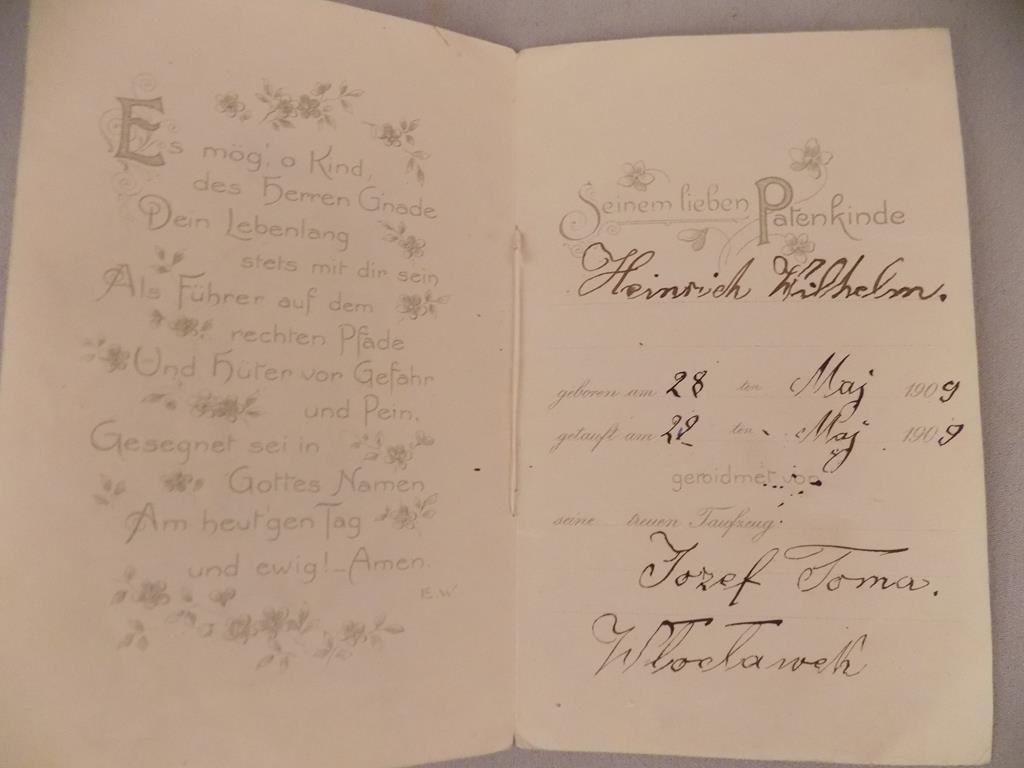 Es mög', o Kind,
des Herren Gnade
Dein Lebenlang
stets mit dir sein
Als Führer auf dem
rechten Pfade
Und Hüter vor Gefahr
und Pein.
Gesegnet sei in
Gottes Namen
Am heut'gen Tag
und ewig!_Amen.
E.W
Seinem lieben Patenkinde
Heinrich Wilhelm.
geboren am 28 ten Maj 1909
getauft am ten Maj 1909
gewidmet von
seine treuen Taufzeug
Jozef Toma.
Włocławek